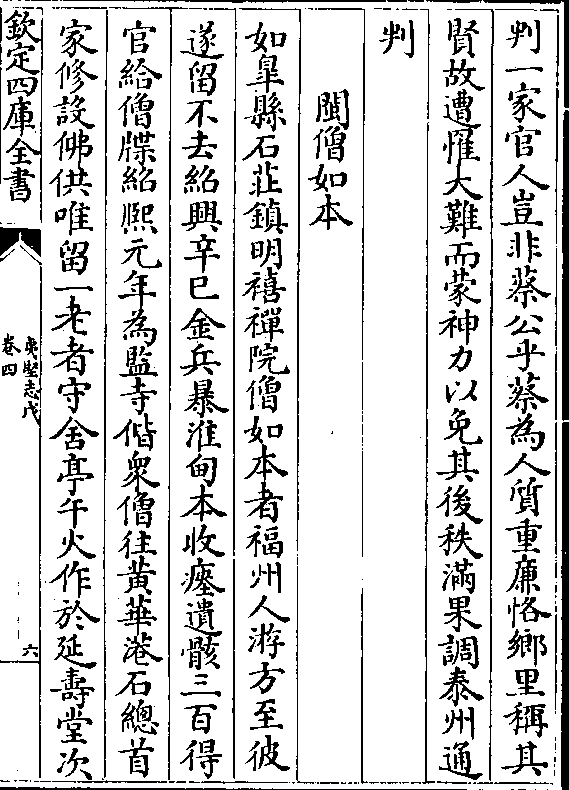 判一家官人豈非蔡公乎蔡為人質重廉恪鄉里稱其
賢故遭罹大難而蒙神力以免其後秩滿果調泰州通
判
閩僧如本
如臯縣石莊鎮明禧禪院僧如本者福州人游方至彼
遂留不去紹興辛巳金兵暴淮甸本收瘞遺骸三百得
官給僧牒紹熙元年為監寺偕衆僧往黄華港石總首
家修設佛供唯留一老者守舍亭午火作於延壽堂次
欽定四庫全書
夷堅志戊
卷四
六